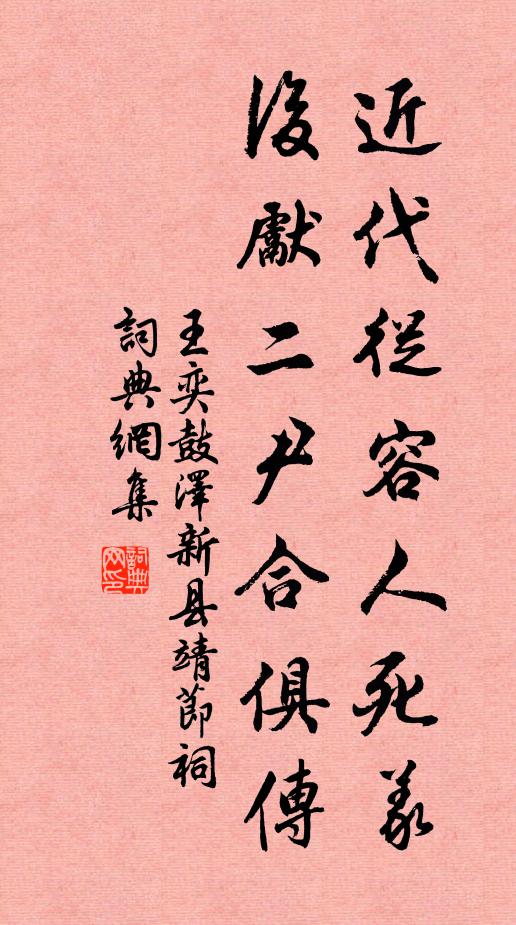 近代從容人死義
後獻二尹合俱傳
王奕鼓澤新县靖節祠
詞典網集
詞典網印